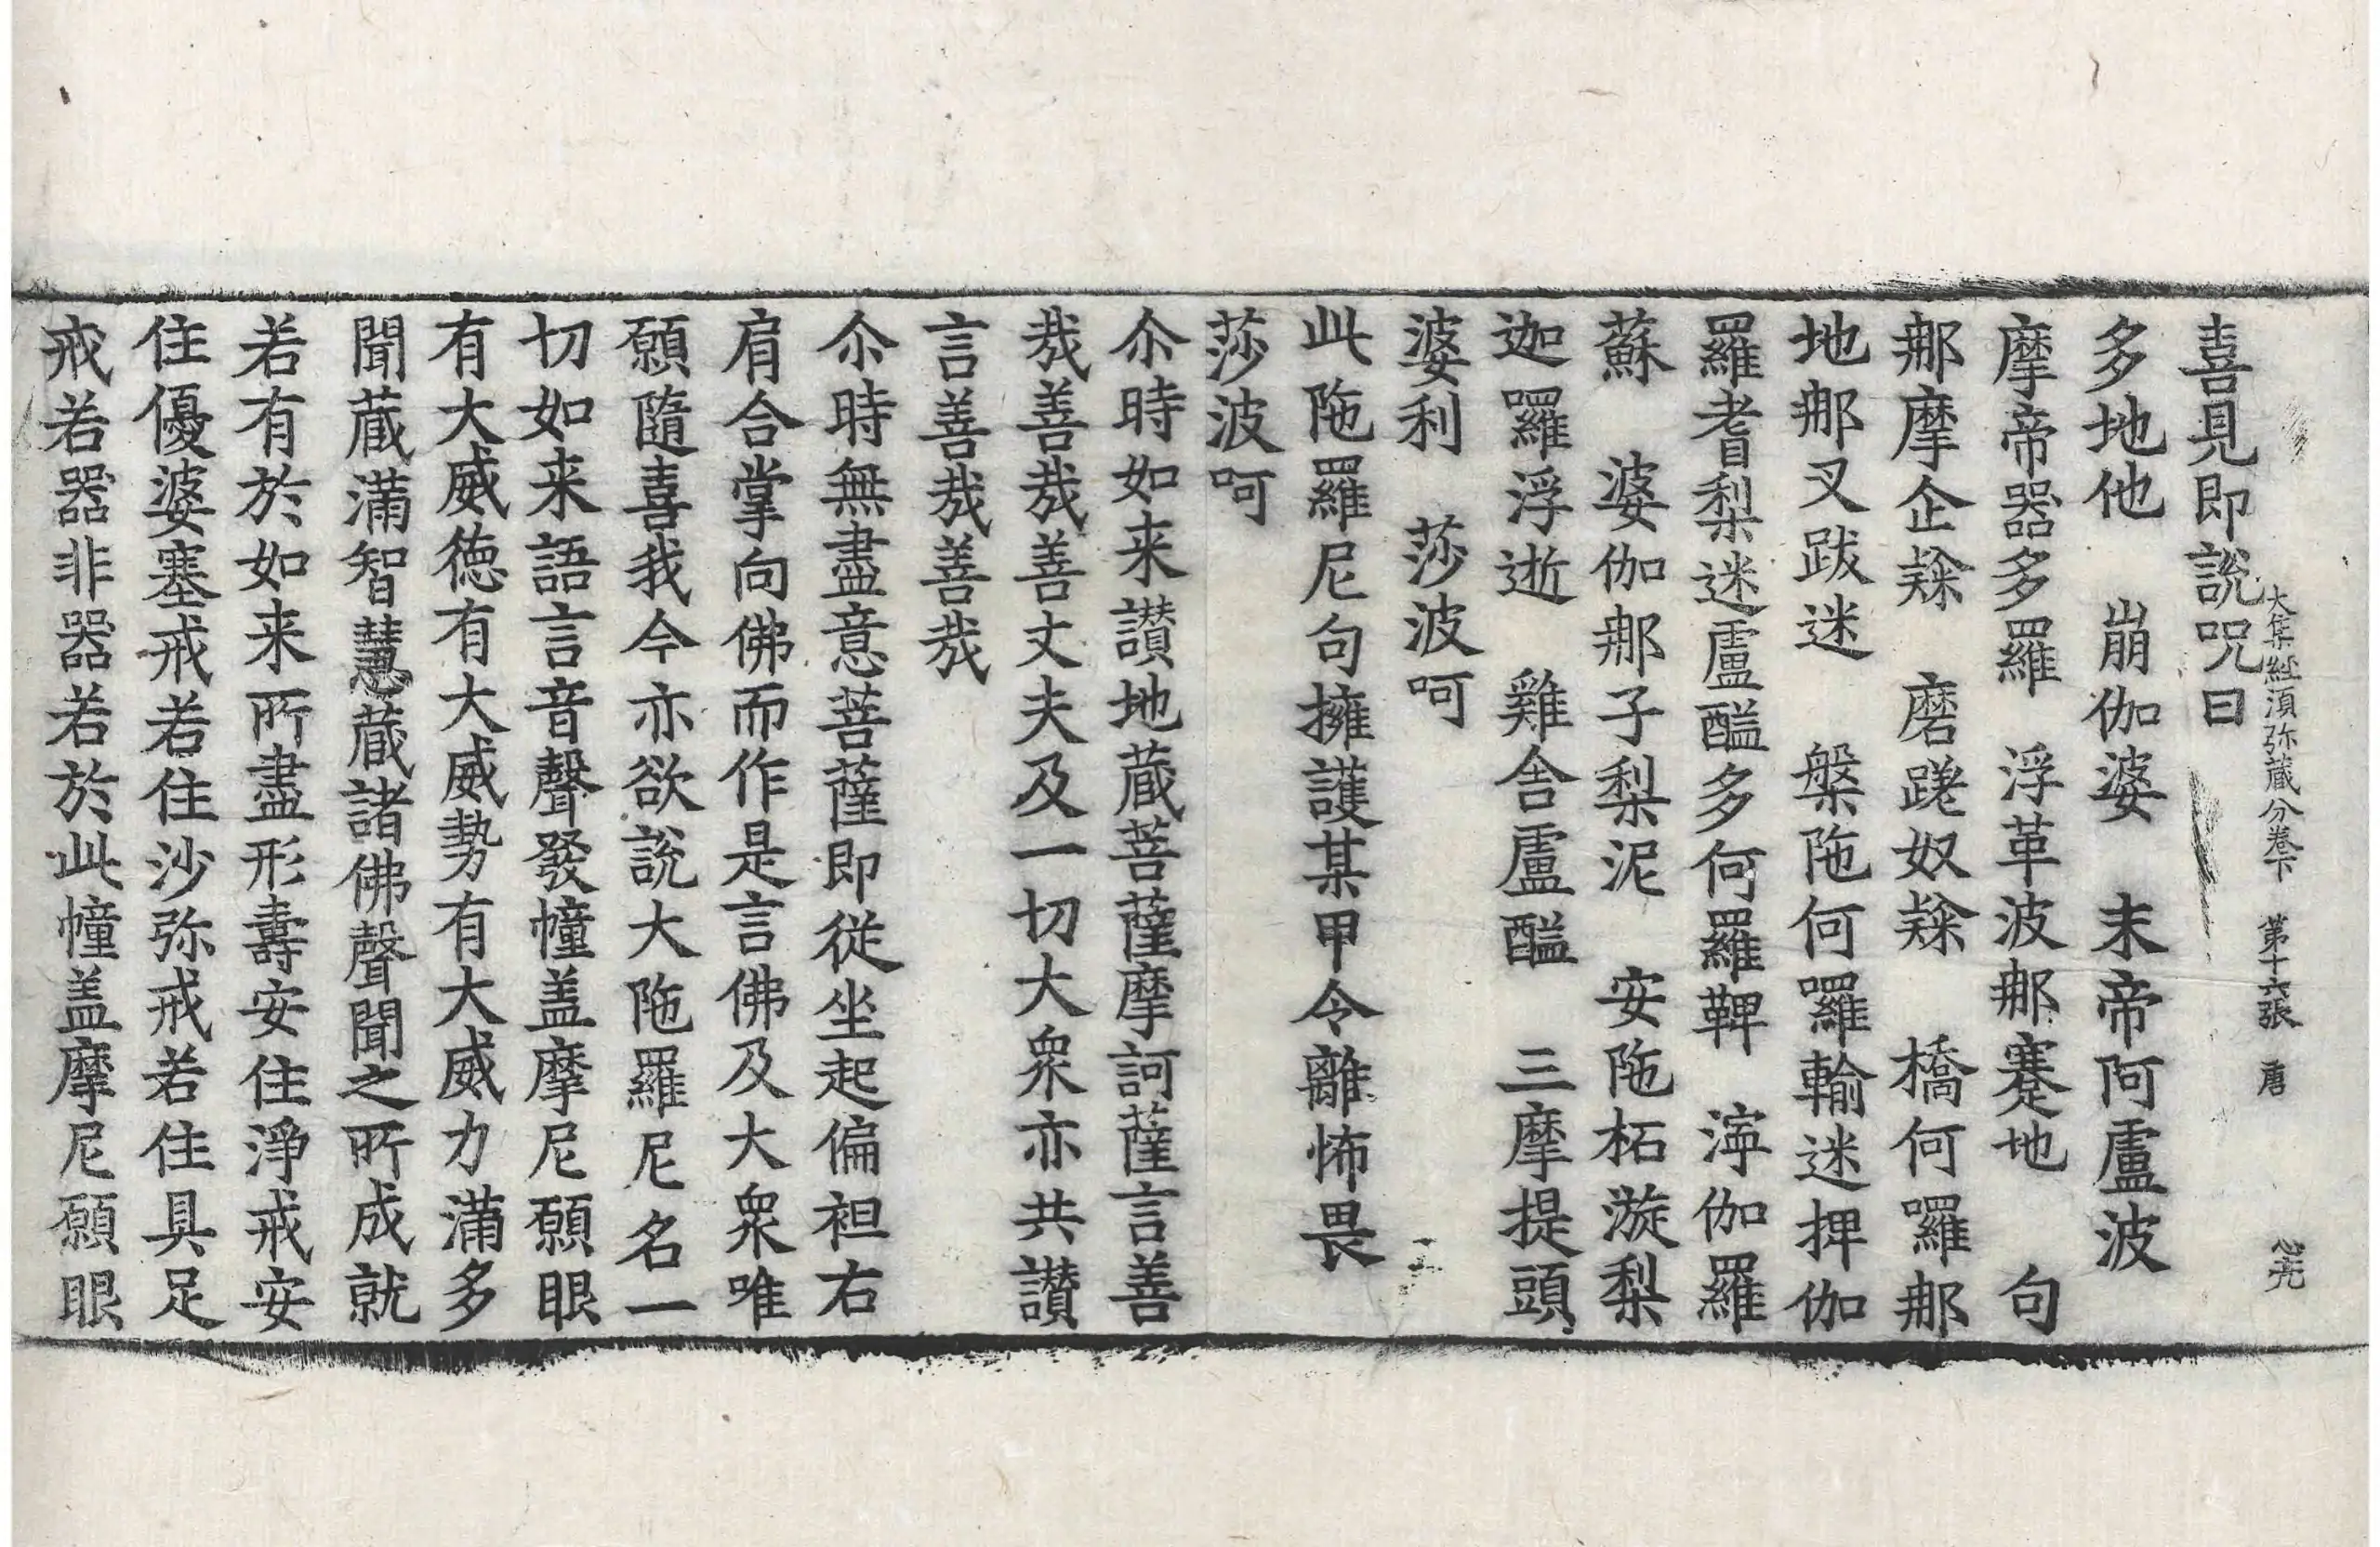 大集經須弥蔵分卷下 第十六張 唐
喜見即說呪曰
多地他 崩伽婆 末帝阿盧波
摩帝器多羅 浮革波𨚗蹇地 句
𨚗摩企𨽻 磨蹉奴𨽻 橋何囉𨚗
地𨚗叉跋迷 槃陁何囉輸迷捭伽
羅耆梨迷盧醯多何羅鞞 渟伽羅
蘇 婆伽𨚗子梨泥 安陁柘漩梨
迦囉浮逝 雞舎盧醯 三摩提頭
婆利 莎波呵
此陁羅尼句擁護某甲令離怖畏
莎波呵
尒時如来讃地蔵菩薩摩訶薩言善
㢤善㢤善丈夫及一切大衆亦共讃
言善㢤善㢤
尒時無盡意菩薩即従坐起偏袒右
肩合掌向佛而作是言佛及大衆唯
願隨喜我今亦欲說大陁羅尼名一
切如来語言音聲發幢盖摩尼願眼
有大威徳有大威勢有大威力滿多
聞蔵滿智慧蔵諸佛聲聞之所成就
若有於如来所盡形壽安住淨戒安
住優婆塞戒若住沙弥戒若住具足
戒若器非器若於此幢盖摩尼願眼